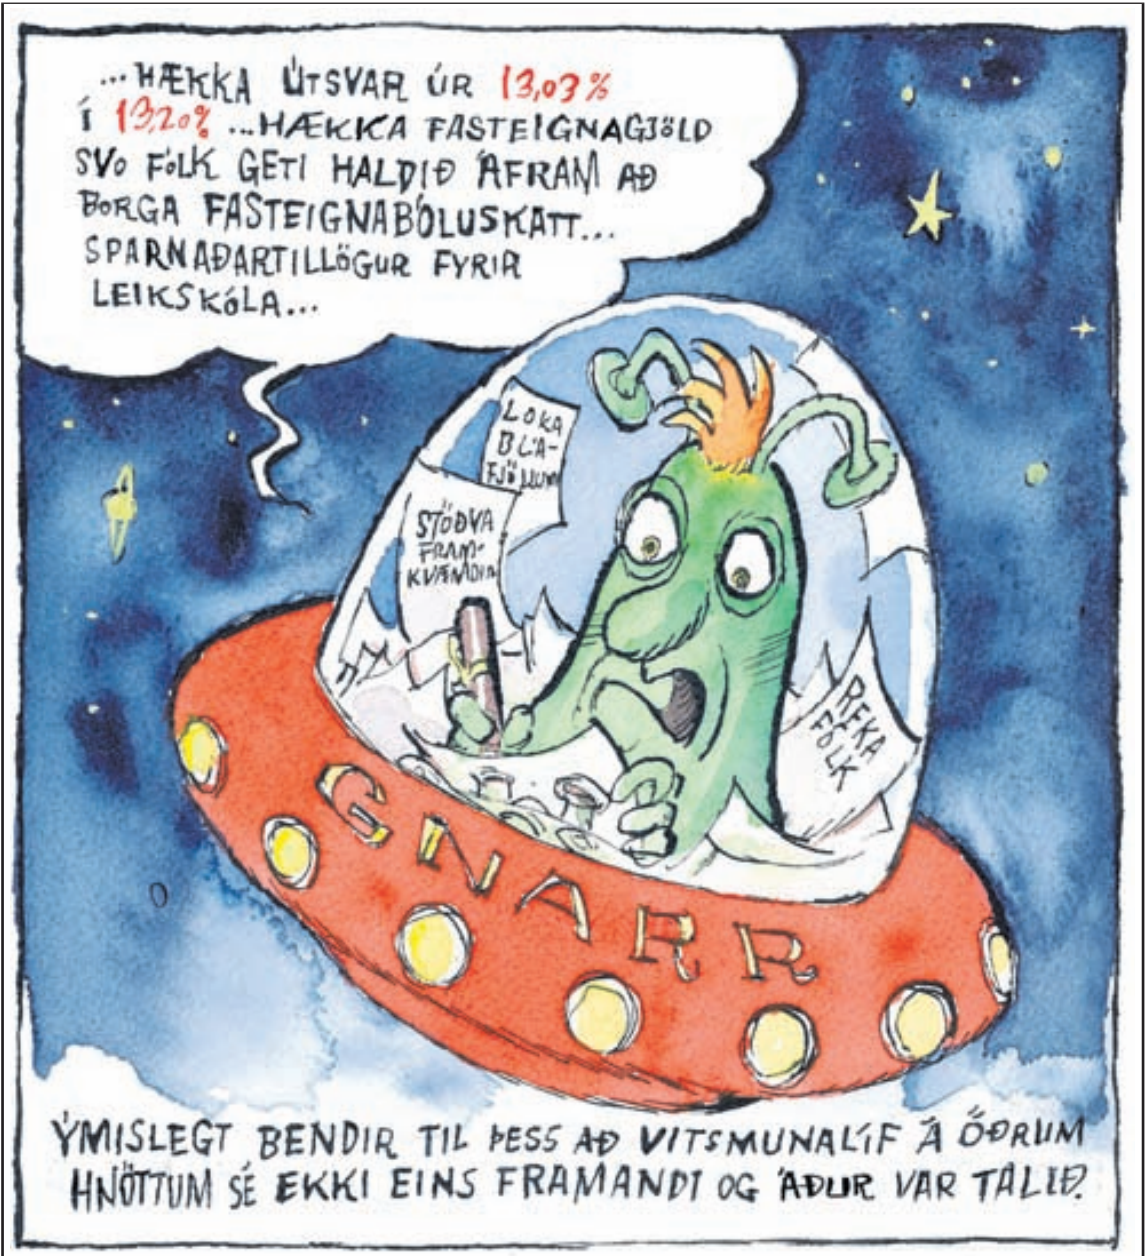 ...HÆKKA ÚTSVAR ÚR 13,03%
Í 13,20% ...HÆKKA FASTEIGNAGJÖLD
SVO FÓLK GETI HALDIÐ ÁFRAM AÐ
BORGA FASTEIGNABÓLUSKATT...
SPARNAÐARTILLÖGUR FYRIR
LEIKSKÓLA...
LOKA
BLÁ-
FJÖLLUM
STÖÐVA
FRAM-
KVÆMDIR
REKA
FÓLK
GNARR
ÝMISLEGT BENDIR TIL ÞESS AÐ VITSMUNALÍF Á ÖÐRUM
HNÖTTUM SÉ EKKI EINS FRAMANDI OG ÁÐUR VAR TALIÐ.